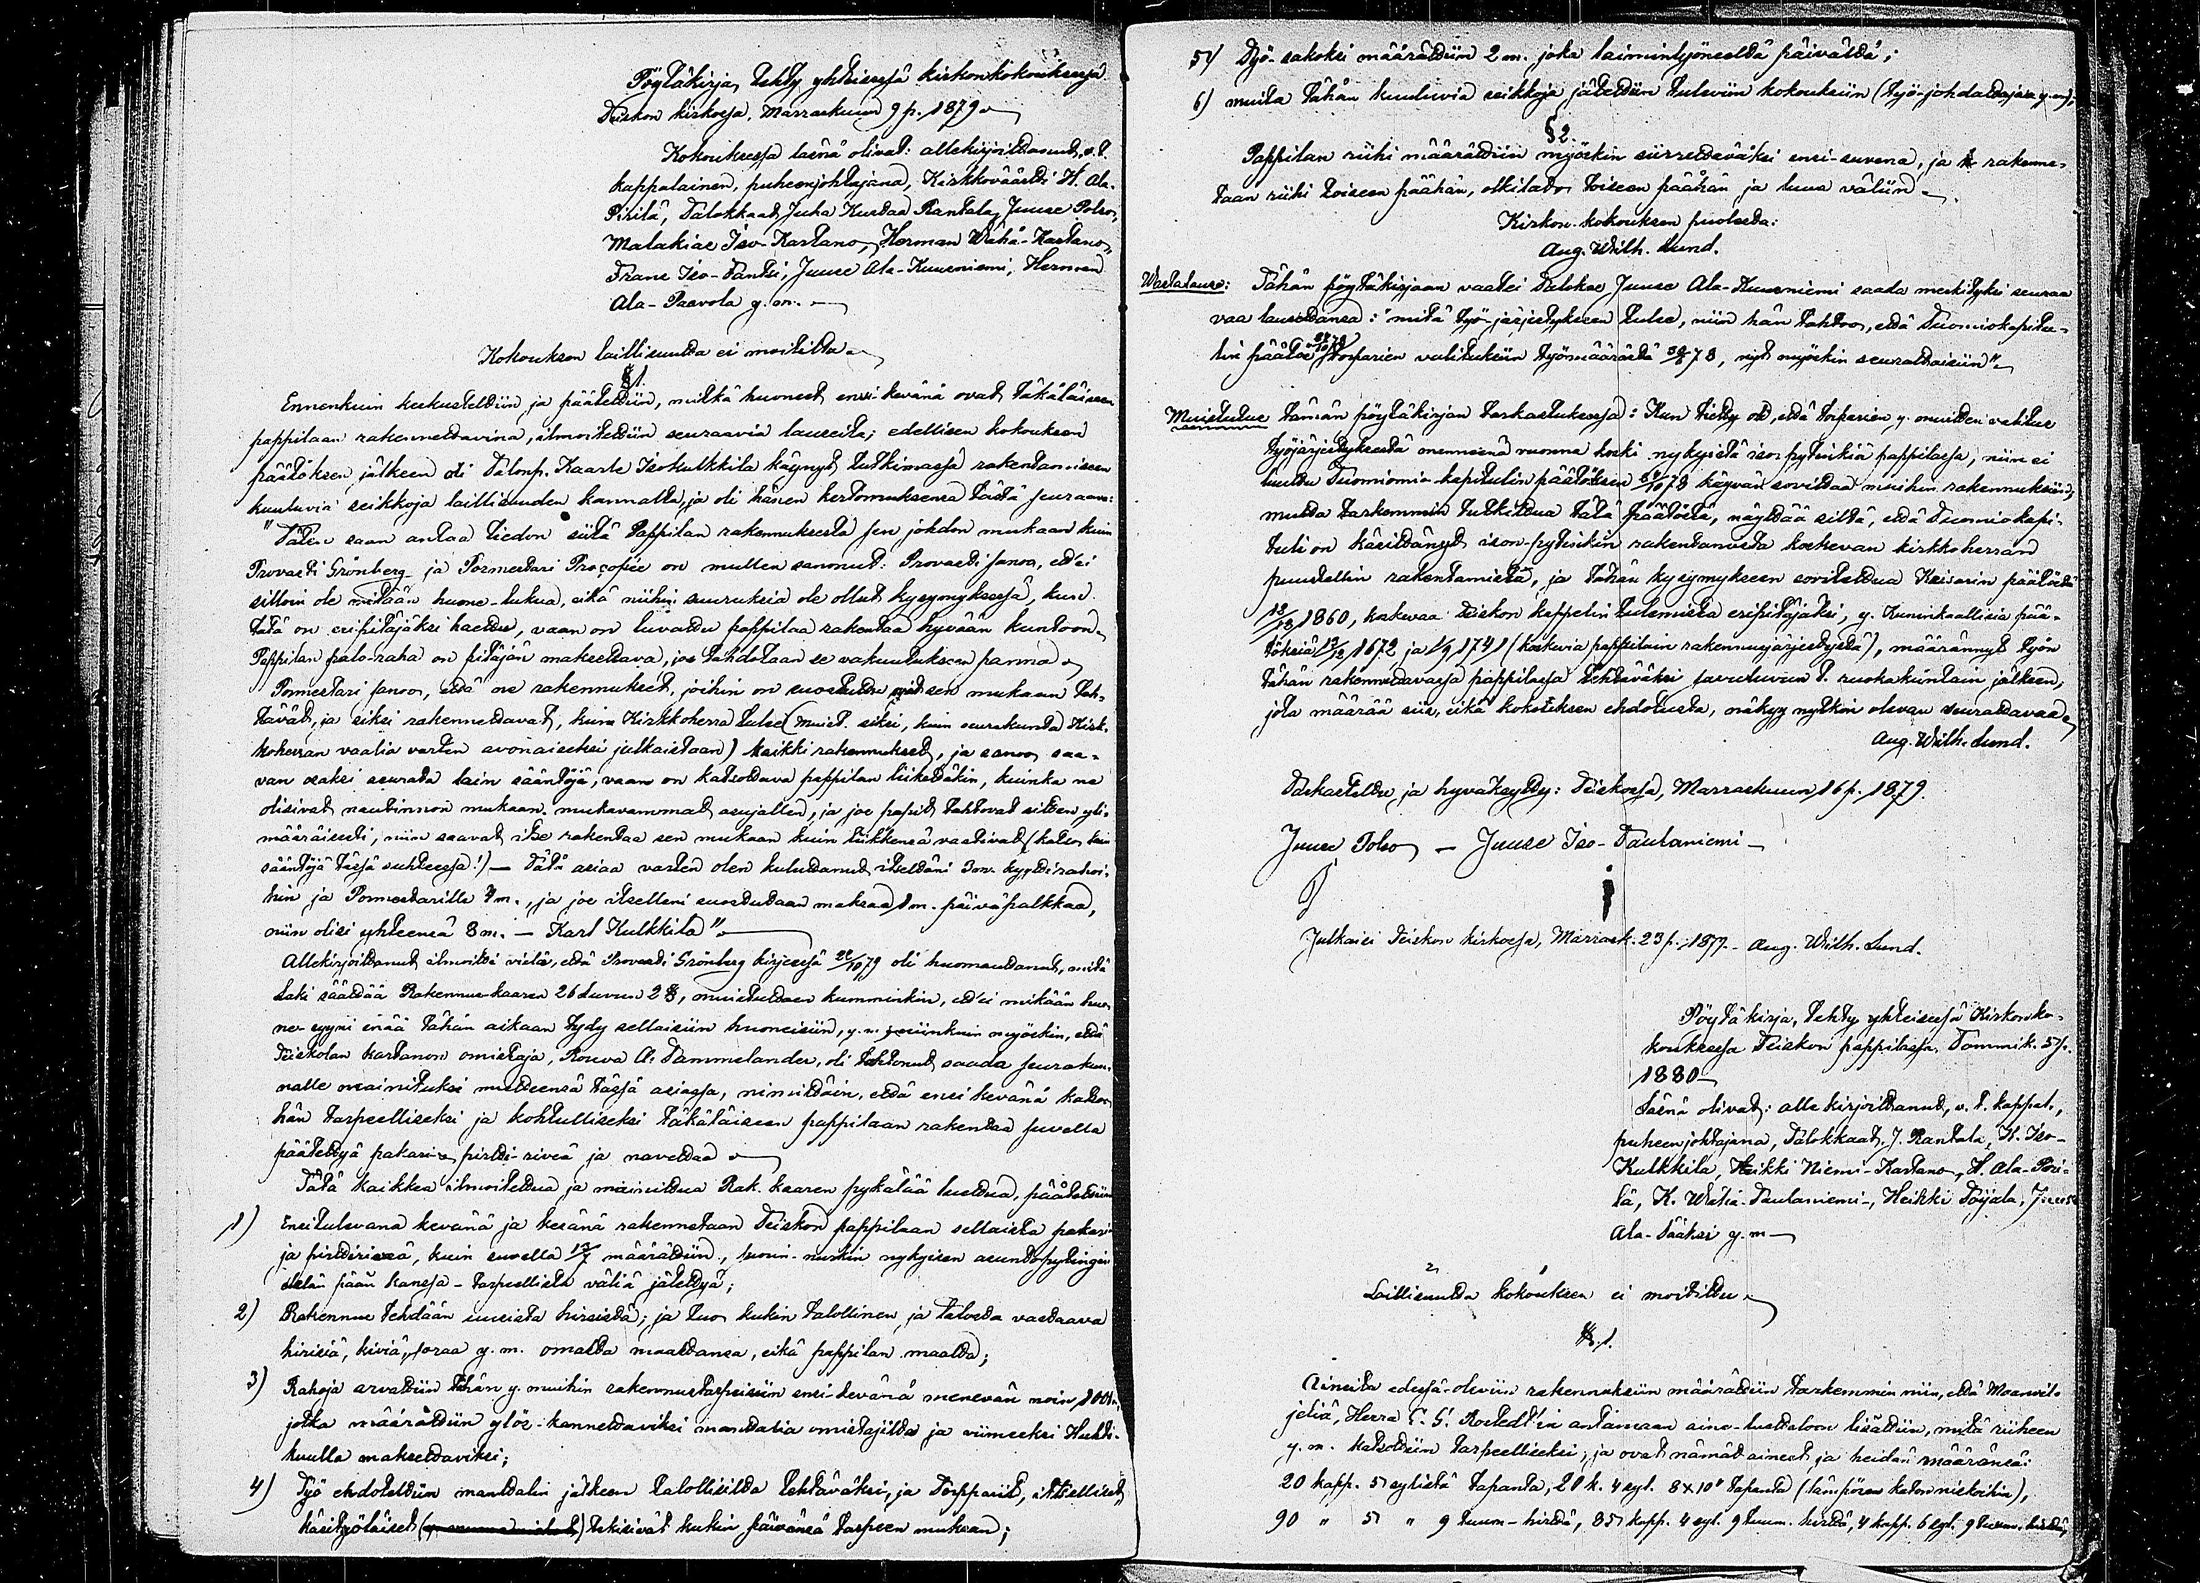 Pöytäkirja, tehty yhteisessä kirkonkokouksessa
Teiskon kirkossa, Marraskuun 9 p. 1879.
Kokouksessa läsnä olivat: allekirjoittanut, v.t.
kappalainen, puheenjohtajana, Kirkkoväärti H. Ala-
Pirilä, Talokkaat Juha Kustaa Rantala, Juuse Polso,
Malakias Iso-Kartano, Herman Wähä-Kartano,
Frans Iso-Pantsi, Juuse Ala-Kuusniemi, Herman
Ala-Paavola y.m.
Kokouksen laillisuutta ei moitittu.
§ 1.
Ennenkuin keskusteltiin ja päätettiin, mitkä huoneet ensi kevänä ovat täkäläiseen
pappilaan rakennettavina, ilmoitettiin seuraavia lauseita; edellisen kokouksen
päätöksen jälkeen oli Talonp. Kaarle Isokulkkila käynyt tutkimassa rakentamiseen
kuuluvia seikkoja laillisuuden kannalta, ja oli hänen kertomuksensa tästä seuraava:
"Täten saan antaa tiedon siitä Pappilan rakennuksesta sen johdon mukaan kuin
Provasti Grönberg ja Pormestari Procopée on mullen sanonut: Provasti sanoo, ett'ei
silloin ole mitään huone-lukua, eikä niihin suuruksia ole ollut kysymyksessä, kun
tätä on eripitäjäksi haettu, vaan on luvattu pappilaa rakentaa hyvään kuntoon.
Pappilan palo-raha on pitäjän maksettava, jos tahdotaan se vakuutukseen panna.
Pormestari sanoo, että ne rakennukset, joihin on suostuttu, sen mukaan teh-
tävät, ja siksi rakennettavat, kuin Kirkkoherra tulee (muist. siksi, kuin seurakunta Kirk-
koherran vaalia varten avonaiseksi julkaistaan) kaikki rakennukset, ja sanoo saa-
van osaksi seurata lain sääntöjä, vaan on katsottava pappilan liikettäkin, kuinka ne
olisivat nautinnon mukaan mukavammat asujallen, ja jos papit tahtovat sitten yli-
määräisesti, niin saavat itse rakentaa sen mukaan kuin liikkensä vaativat (katso lain
sääntöjä tässä suhteessa!) — Tätä asiaa varten olen kuluttanut itseltäni 3 m. kyyti rahoi-
hin ja Pormestarille 4 m., ja jos itselleni suostutaan maksaa 1 m. päiväpalkkaa,
niin olisi yhteensä 8 m. — Karl Kulkkila".
Allekirjoittanut ilmoitti vielä, että Provasti Grönberg kirjeessä 22/10 79 oli huomauttanut, mitä
Laki säätää Rakennus-kaaren 26 Luvun 2 §, muistuttaen kumminkin, ett'ei mikään huo-
ne-syyni enää tähän aikaan tydy sellaisiin huoneisiin, y.m. niinkuin myöskin, että
Teiskolan kartanon omistaja, Rouva A. Tammelander, oli tahtonut saada seurakun-
nalle mainituksi mielteensä tässä asiassa, nimittäin, että ensi kevänä katsoo
hän tarpeelliseksi ja kohtulliseksi täkäläiseen pappilaan rakentaa suvella
päätettyä pakari- pirtti-riviä ja navettaa.
Tätä kaikkea ilmoitettua ja mainittua Rak. kaaren pykälää luettua, päätettiin
1) Ensitulevana kevänä ja kesänä rakennetaan Teiskon pappilaan sellaista pakari
ja pirttiriviä, kuin suvella 13/7 määrättiin, sunin-nurkin nykyisen asuntopytingin
etelän pään kanssa - tarpeellista väliä jätettyä;
2) Rakennus tehdään uusista hirsistä; ja tuo kukin talollinen ja talosta vastaava
hirisiä, kiviä, soraa y.m. omalta maaltansa, eikä pappilan maalta;
3) Rahoja arvattiin tähän y. muihin rakennustarpeisiin ensi-kevänä menevän noin 1000 m.
jotka määrättiin ylös-kannettaviksi manttalia omistajilta ja viimeeksi Huhti-
kuulla maksettaviksi;
4) Työ ehdotettiin manttalin jälkeen talollisilta tehtäväksi, ja Torpparit, itselliset,
käsityöläiset tekisivät kukin päivänsä tarpeen mukaan;
5) Työ-sakoksi määrättiin 2 m. joka laiminlyöneeltä päivältä;
6) muita tähän kuuluvia seikkoja jätettiin tuleviin kokouksiin (työ-johdattajaa y.m).
§ 2.
Pappilan riihi määrättiin myöskin siirrettäväksi ensi-suvena, ja rakenne-
taan riihi toiseen päähän, olkilato toiseen päähän ja luuva väliin.
Kirkon-kokouksen puolesta:
Aug. Wilh. Lund.
Wastalause: Tähän pöytäkirjaan vaatei Talokas Juuse Ala-Kuusniemi saada merkityksi seuraa-
vaa lausettansa: "mitä työ-järjestykseen tulee, niin hän tahtoo, että Tuomiokapitu-
lin päätös torparien valituksiin työmäärästä 78, nyt myöskin seurattaisiin".
Muistutus tämän pöytäkirjan tarkastuksessa: Kun tietty on, että torparien y. muitten valitus
työjärjestyksestä menneenä vuonna koski nykyistä ison pytinkiä pappilassa, niin ei
luultu Tuomiomio-kapitulin päätöksen 78 käyvän sovittaa muihin rakennuksiin,
mutta tarkemmin tutkittua tätä päätöstä, näyttää siltä, että Tuomiokapi-
tuli on käsittänyt ison-pytinkin rakentamista koskevan kirkkoherran
puustellin rakentamista, ja tähän kysymykseen sovitettua Keisarin päätöstä
1860, koskevaa Teiskon kappelin tulemista eripitäjäksi, y. Kuninkaallisia pää-
töksiä 1672 ja 1741 (koskevia pappilain rakennusjärjestystä), määrännyt työn
tähän rakennettavassa pappilassa tehtäväksi savuluvun t. ruokakuntain jälkeen,
jota määrää siis, eikä kokouksen ehdotusta, näkyy nytkin olevan seurattavaa.
Aug. Wilh. Lund.
Tarkastettu ja hyväksytty: Teiskossa, Marraskuun 16 p. 1879.
Juuse Polso — Juuse Iso-Paulaniemi —
Julkaisi Teiskon kirkossa, Marrask. 23 p. 1879 - Aug. Wilh. Lund.
Pöytäkirja, tehty yhteisessä Kirkonko-
kouksessa Teiskon pappilassa, Tammik. 5 p.
1880 —
Läsnä olivat: allekirjoittanut, v.t. kappal.,
puheenjohtajana, Talokkaat, J. Rantala, K. Iso-
Kulkkila, Heikki Niemi-Kartano, H. Ala-Piri-
lä, K. Wähä-Paulaniemi, Heikki Toijala, Juuse
Ala-Pääksi y.m —
Laillisuutta kokouksen ei moitittu.
§. 1.
Aineita edessä-oleviin rakennuksiin määrättiin tarkemmin niin, että Maanvil-
jeliä, Herra C. G. Rostedt'in antamaan aine-luetteloon lisättiin, mitä riiheen
y.m. katsottiin tarpeelliseksi; ja ovat nämät aineet ja heidän määränsä:
20 kapp. 5 sylistä tapanta, 20 k. 4 syl. 8 x 10" tapanta
90 " 5 " 9 tuum-hirttä, 35 kapp. 4 syl. 9 tuum. hirttä, 4 kapp. 6 syl. 9 tuum. hirttä,